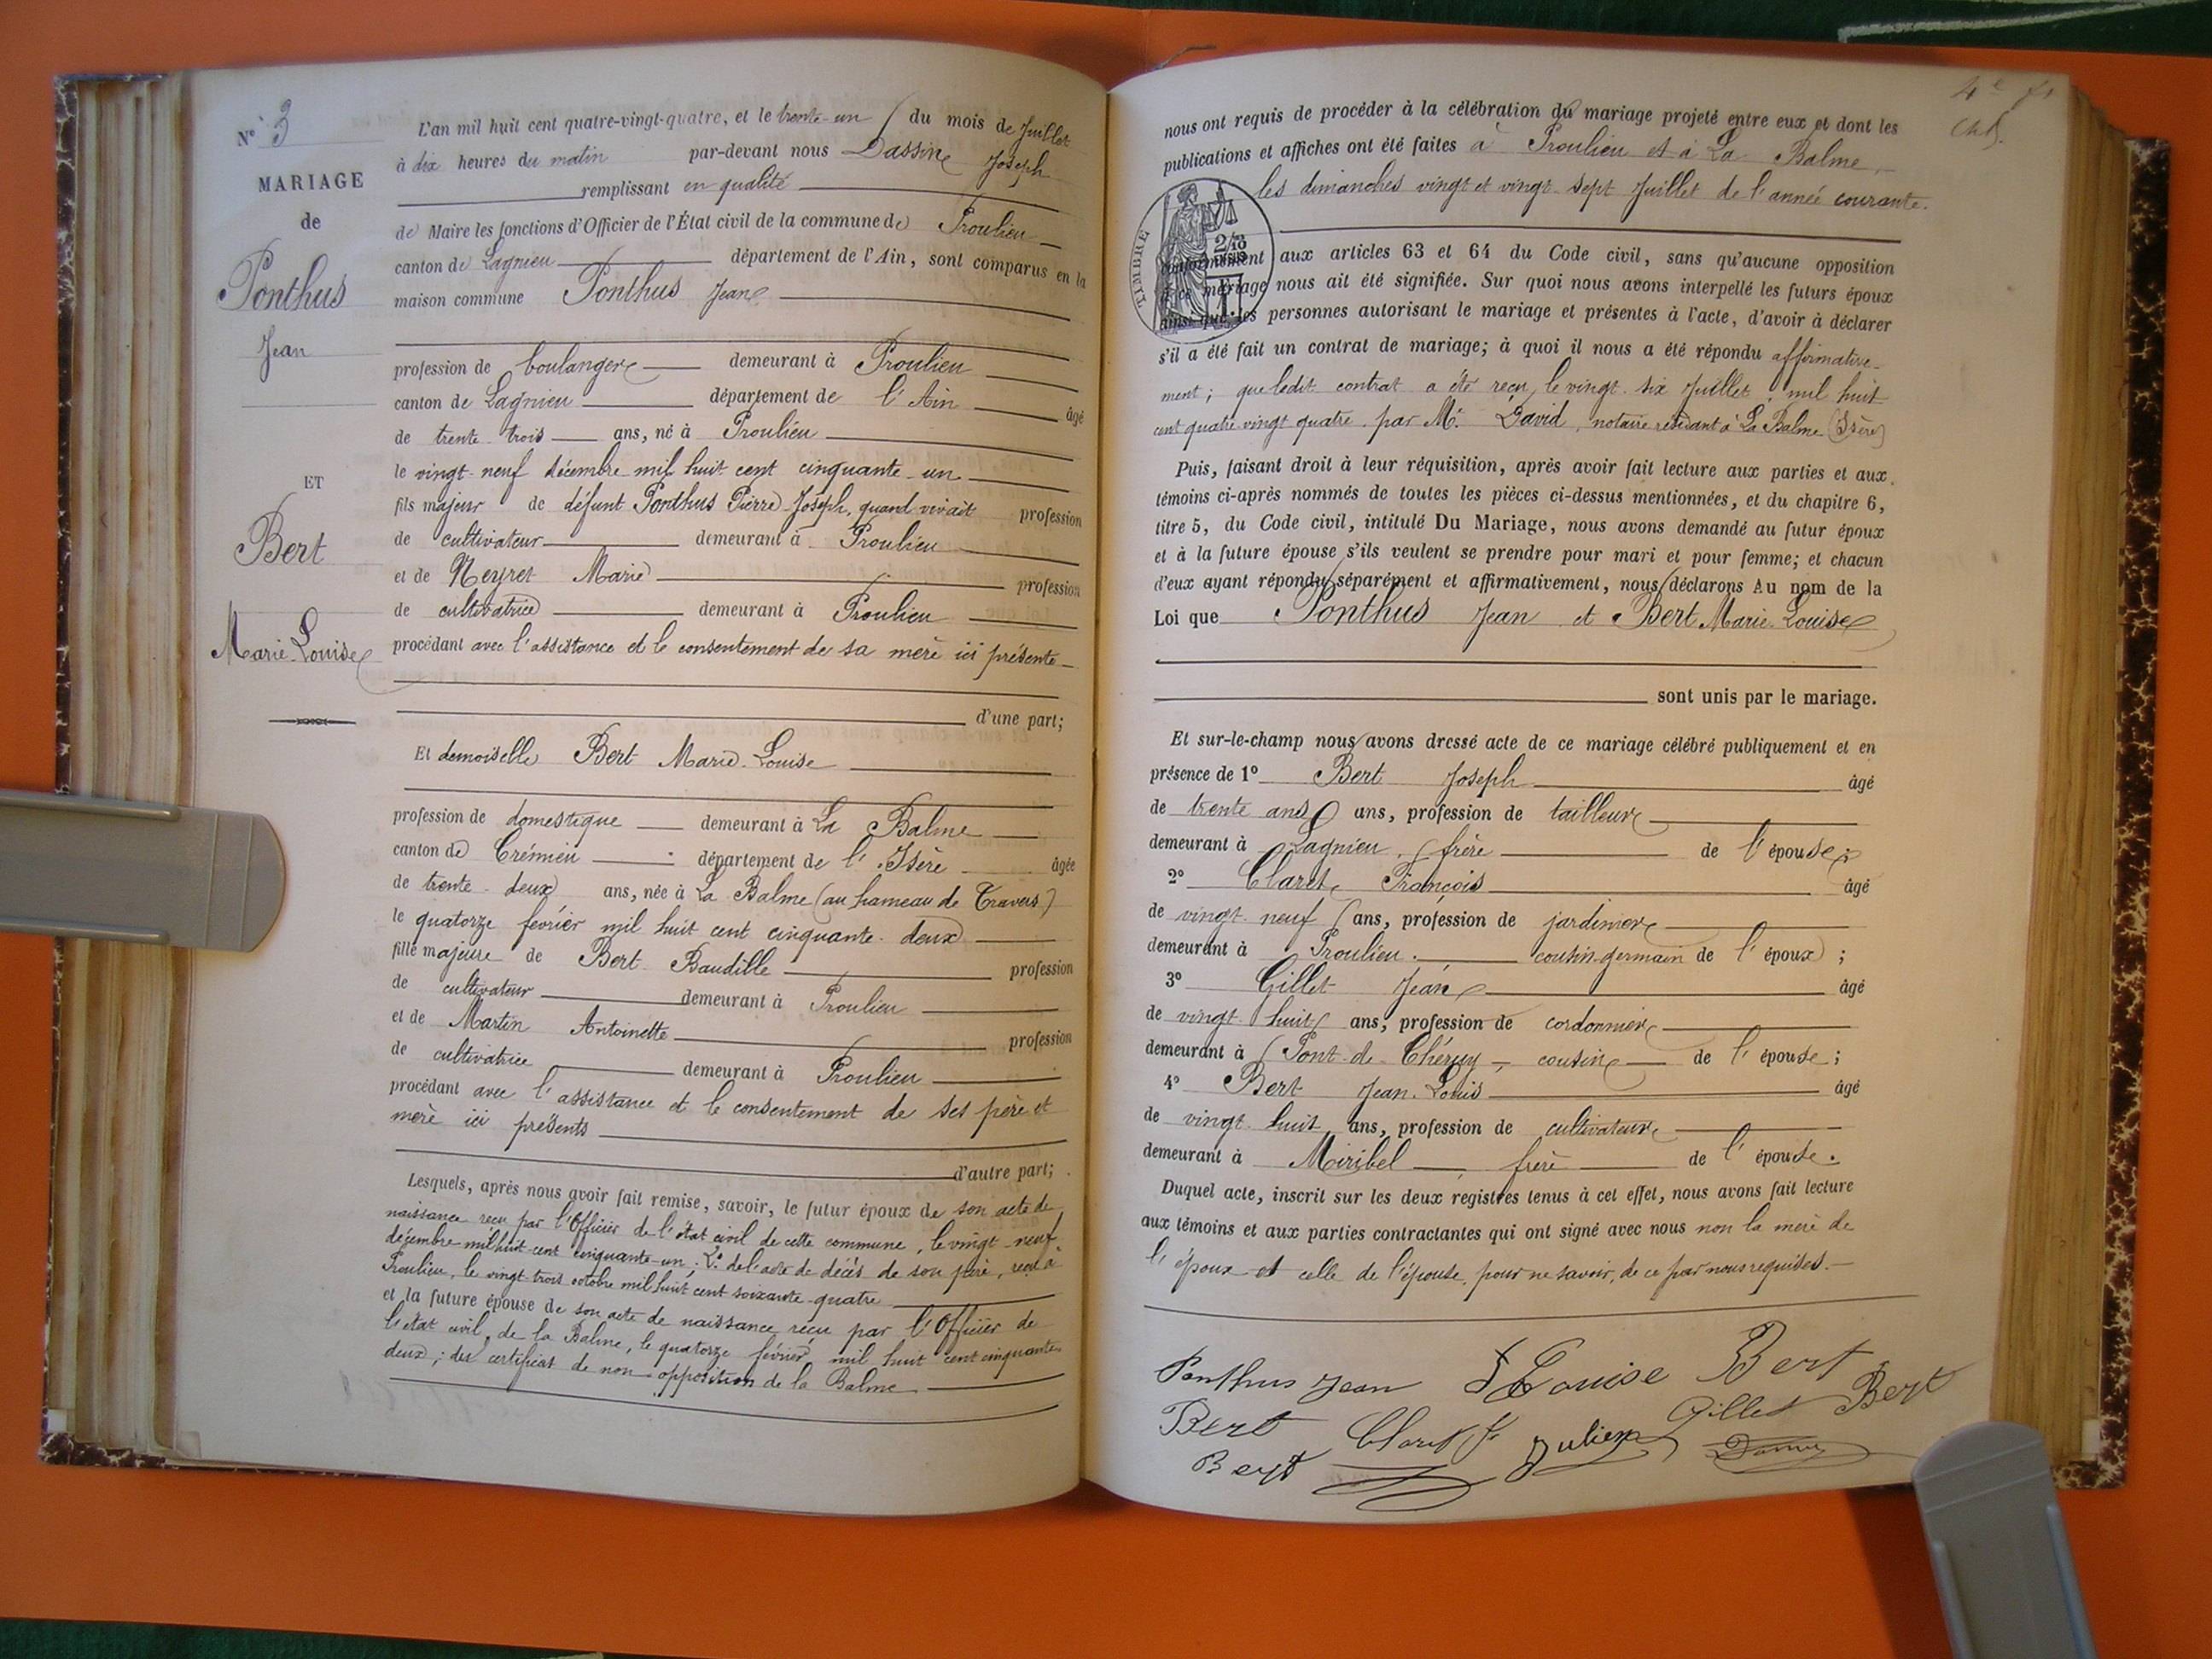 N° 3
MARIAGE
de
Ponthus
Jean
ET
Bert
Marie-Louise
L'an mil huit cent quatre-vingt-quatre, et le trente-un du mois de Juillet
à dix heures du matin par-devant nous Dassin Joseph
remplissant en qualité
de Maire les fonctions d'Officier de l'État civil de la commune de Proulieu
canton de Lagnieu département de l'Ain, sont comparus en la
maison commune Ponthus Jean
profession de boulanger demeurant à Proulieu
canton de Lagnieu département de l'Ain âgé
de trente-trois ans, né à Proulieu
le vingt-neuf décembre mil huit cent cinquante-un
fils majeur de défunt Ponthus Pierre-Joseph, quand vivait profession
de cultivateur demeurant à Proulieu
et de Neyret Marie profession
de cultivatrice demeurant à Proulieu
procédant avec l'assistance et le consentement de sa mère ici présente
d'une part;
Et demoiselle Bert Marie-Louise
profession de domestique demeurant à La Balme
canton de Crémieu département de l'Isère âgée
de trente-deux ans, née à La Balme (au hameau de Travers)
le quatorze février mil huit cent cinquante-deux
fille majeure de Bert Baudille profession
de cultivateur demeurant à Proulieu
et de Martin Antoinette profession
de cultivatrice demeurant à Proulieu
procédant avec l'assistance et le consentement de ses père et
mère ici présents
d'autre part;
Lesquels, après nous avoir fait remise, savoir, le futur époux de son acte de
naissance reçu par l'Officier de l'état civil de cette commune, le vingt-neuf
décembre mil huit cent cinquante-un; 2° de l'acte de décès de son père, reçu à
Proulieu, le vingt-trois octobre mil huit cent soixante-quatre
et la future épouse de son acte de naissance reçu par l'Officier de
l'état civil de la Balme, le quatorze février mil huit cent cinquante
deux; du certificat de non-opposition de la Balme
4e f
nous ont requis de procéder à la célébration du mariage projeté entre eux et dont les
publications et affiches ont été faites à Proulieu et à La Balme,
les dimanches vingt et vingt-sept Juillet de l'année courante.
TIMBRE
2/10
conformément aux articles 63 et 64 du Code civil, sans qu'aucune opposition
à ce mariage nous ait été signifiée. Sur quoi nous avons interpellé les futurs époux
ainsi que les personnes autorisant le mariage et présentes à l'acte, d'avoir à déclarer
s'il a été fait un contrat de mariage; à quoi il nous a été répondu affirmative-
ment; que ledit contrat a été reçu le vingt-six Juillet mil huit
cent quatre-vingt quatre par Me David, notaire résidant à La Balme (Isère)
Puis, faisant droit à leur réquisition, après avoir fait lecture aux parties et aux
témoins ci-après nommés de toutes les pièces ci-dessus mentionnées, et du chapitre 6,
titre 5, du Code civil, intitulé Du Mariage, nous avons demandé au futur époux
et à la future épouse s'ils veulent se prendre pour mari et pour femme; et chacun
d'eux ayant répondu séparément et affirmativement, nous déclarons Au nom de la
Loi que Ponthus Jean et Bert Marie-Louise
sont unis par le mariage.
Et sur-le-champ nous avons dressé acte de ce mariage célébré publiquement et en
présence de 1° Bert Joseph âgé
de trente ans ans, profession de tailleur
demeurant à Lagnieu, frère de l'épouse;
2° Claret François âgé
de vingt-neuf ans, profession de jardinier
demeurant à Proulieu cousin-germain de l'époux;
3° Gillet Jean âgé
de vingt-huit ans, profession de cordonnier
demeurant à Pont-de-Chéruy, cousin de l'épouse;
4° Bert Jean-Louis âgé
de vingt-huit ans, profession de cultivateur
demeurant à Miribel frère de l'épouse.
Duquel acte, inscrit sur les deux registres tenus à cet effet, nous avons fait lecture
aux témoins et aux parties contractantes qui ont signé avec nous non la mère de
l'époux et celle de l'épouse, pour ne savoir, de ce par nous requises.
Ponthus Jean Louise Bert
Bert Claret Julien Gillet Bert
Bert